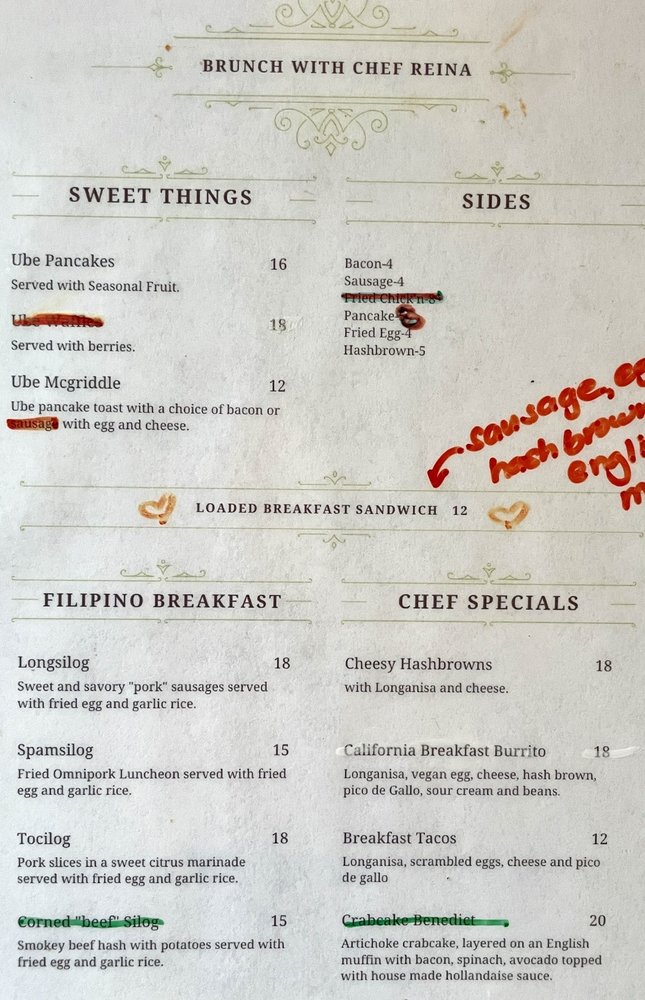 BRUNCH WITH CHEF REINA
SWEET THINGS
Ube Pancakes 16
Served with Seasonal Fruit.
Ube Waffles 18
Served with berries.
Ube Mcgriddle 12
Ube pancake toast with a choice of bacon or
sausage with egg and cheese.
SIDES
Bacon-4
Sausage-4
Fried Chick'n-8
Pancake-
Fried Egg-4
Hashbrown-5
sausage,
hash brown
LOADED BREAKFAST SANDWICH 12
FILIPINO BREAKFAST
Longsilog 18
Sweet and savory "pork" sausages served
with fried egg and garlic rice.
Spamsilog 15
Fried Omnipork Luncheon served with fried
egg and garlic rice.
Tocilog 18
Pork slices in a sweet citrus marinade
served with fried egg and garlic rice.
Corned "beef" Silog 15
Smokey beef hash with potatoes served with
fried egg and garlic rice.
CHEF SPECIALS
Cheesy Hashbrowns 18
with Longanisa and cheese.
California Breakfast Burrito 18
Longanisa, vegan egg, cheese, hash brown,
pico de Gallo, sour cream and beans.
Breakfast Tacos 12
Longanisa, scrambled eggs, cheese and pico
de gallo
Crabcake Benedict 20
Artichoke crabcake, layered on an English
muffin with bacon, spinach, avocado topped
with house made hollandaise sauce.